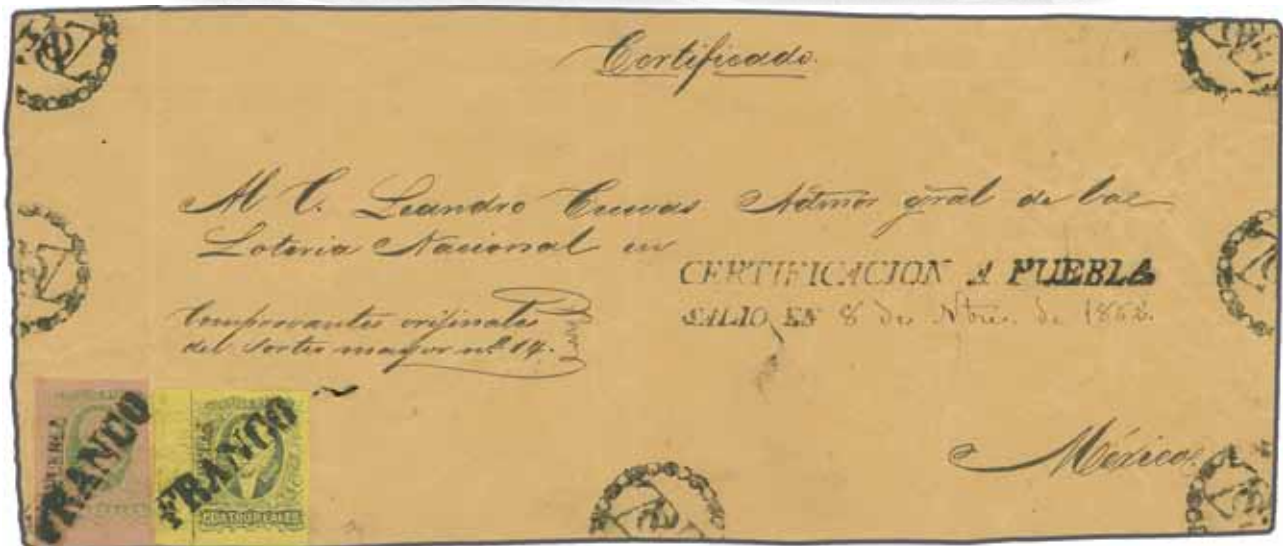 Certificado.
Al C. Leandro Cuevas Admor gral de la
Loteria Nacional en
CERTIFICACION A PUEBLA
SALIO EN 8 de Nbre. de 1862.
Comprovantes originales
del sorteo mayor nº 14.
México.
FRANCO
FRANCO
CUATRO REALES